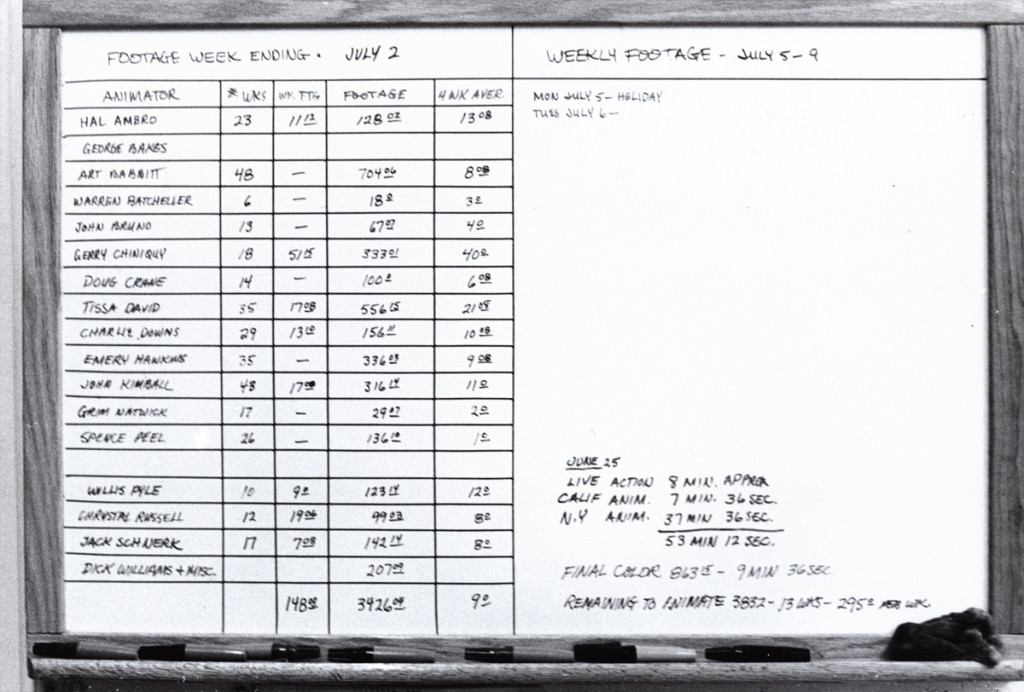 FOOTAGE WEEK ENDING. JULY 2
ANIMATOR # WKS WK. FTG FOOTAGE 4 WK AVER.
HAL AMBRO 23 11 12 128 02 13 08
GEORGE BAKES
ART BABBITT 48 — 704 06 8 08
WARREN BATCHELLER 6 — 18 0 3 0
JOHN BRUNO 13 — 67 07 4 0
GERRY CHINIQUY 18 51 15 333 01 40 0
DOUG CRANE 14 — 100 0 6 08
TISSA DAVID 35 17 08 556 15 21 08
CHARLIE DOWNS 29 13 10 156 11 10 08
EMERY HAWKINS 35 — 336 03 9 08
JOHN KIMBALL 48 17 00 316 14 11 0
GRIM NATWICK 17 — 29 07 2 0
SPENCE PEEL 26 — 136 10 1 0
WILLIS PYLE 10 9 0 123 14 12 0
CHRYSTAL RUSSELL 12 19 06 99 03 8 0
JACK SCHNERK 17 7 08 142 14 8 0
DICK WILLIAMS + MISC. 207 09
148 3426 9 0
WEEKLY FOOTAGE - JULY 5 - 9
MON JULY 5 - HOLIDAY
TUES JULY 6 —
JUNE 25
LIVE ACTION 8 MIN. APPROX
CALIF ANIM. 7 MIN. 36 SEC.
N.Y ANIM. 37 MIN 36 SEC.
53 MIN 12 SEC.
FINAL COLOR 863 15 - 9 MIN 36 SEC.
REMAINING TO ANIMATE 3832 - 13 WKS - 295 0 PER WK.